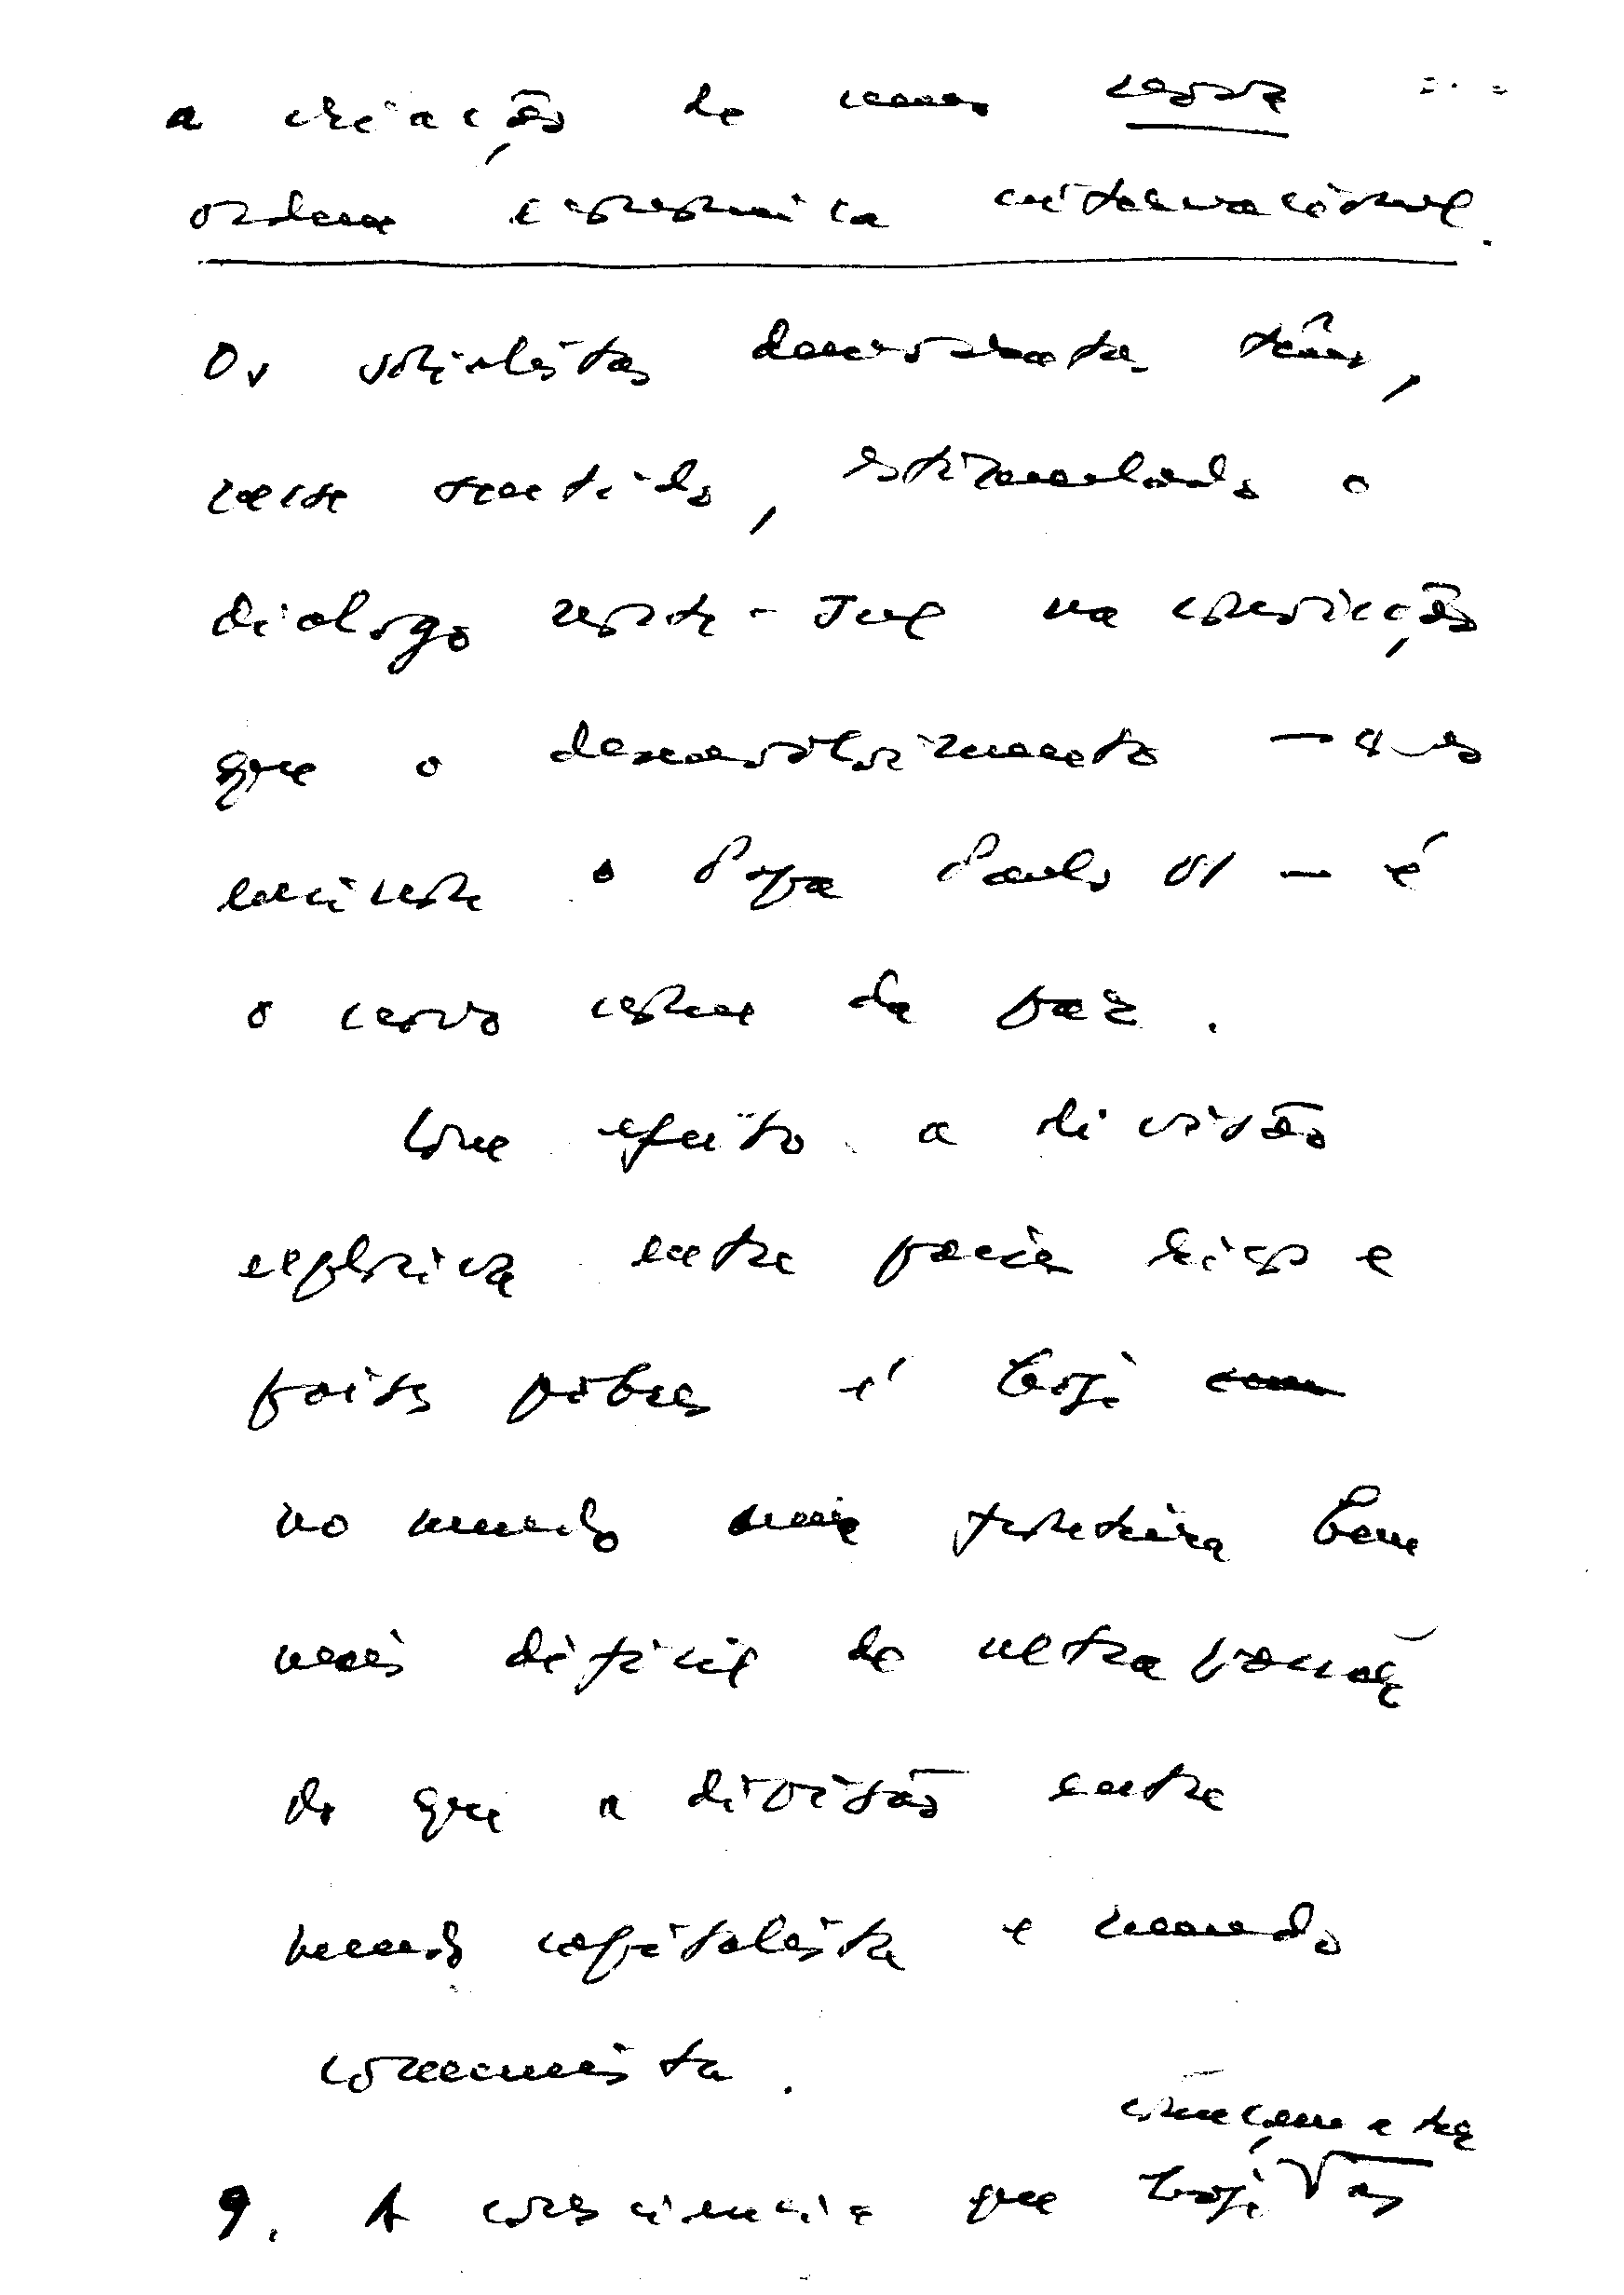 a criação de uma nova
ordem económica internacional.
Os socialistas democratas têm,
nesse sentido, estimulado o
dialogo norte-sul na convicção
que o desenvolvimento —
o Papa Paulo VI — é
o novo nome da paz.
Com efeito a divisão
explosiva entre países ricos e
países pobres é hoje
no mundo uma fronteira bem
mais dificil de ultrapassar
do que a divisão entre
mundo capitalista e mundo
comunista.
começam a ter
9. A consciencia que hoje as